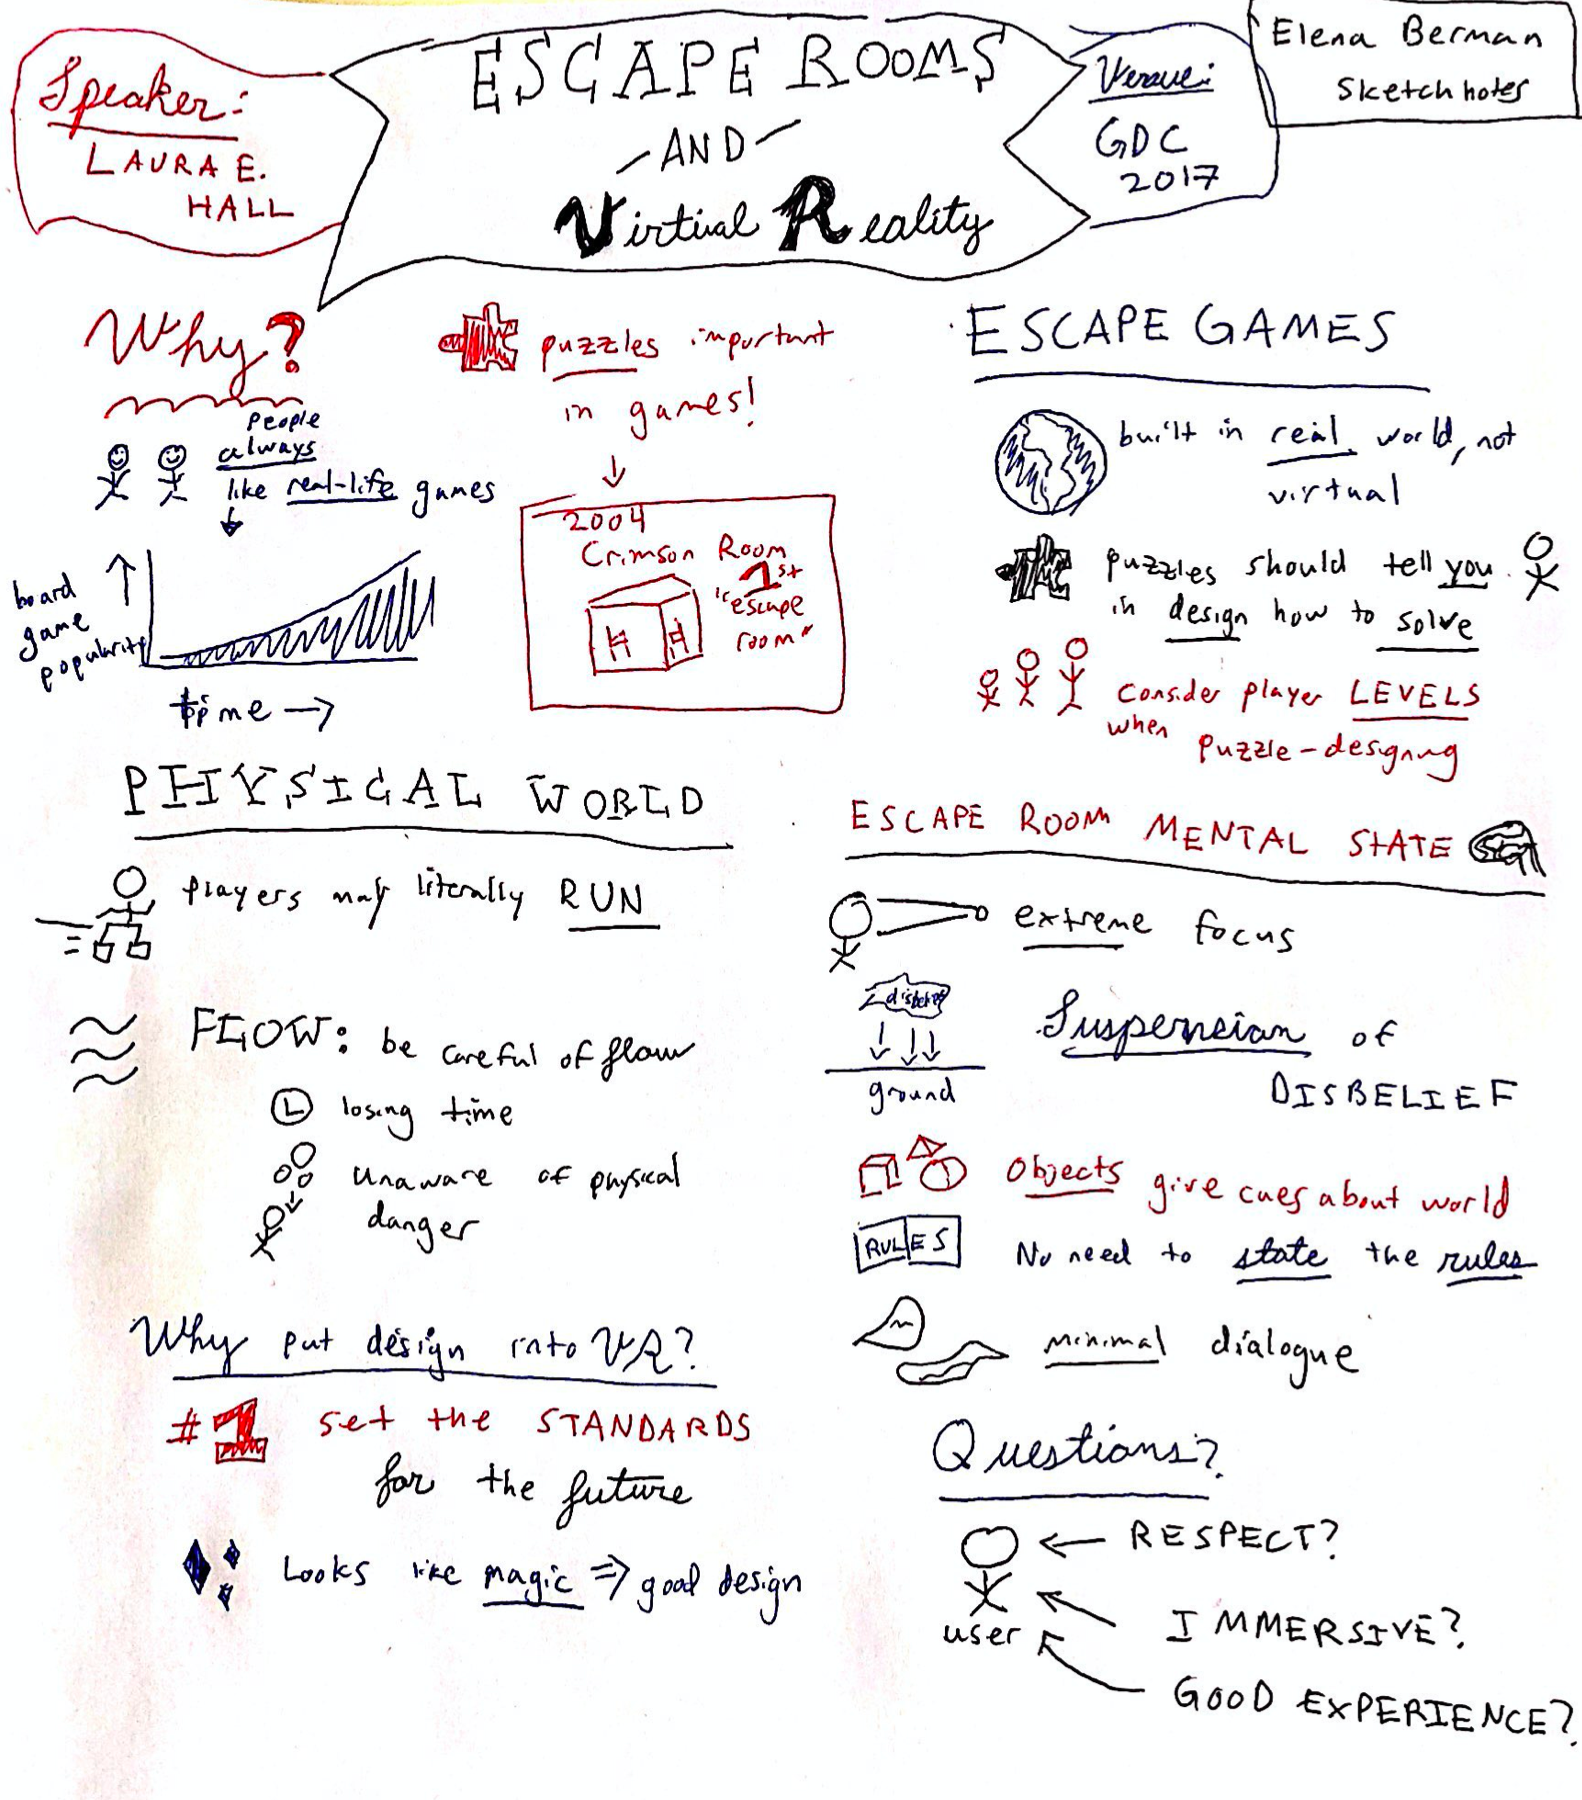 Speaker:
LAURA E.
HALL
ESCAPE ROOMS
AND
Virtual Reality
Venue:
GDC
2017
Elena Berman
Sketchnotes
Why?
People
always
like real-life games
board
game
popularity
time
puzzles important
in games!
2004
Crimson Room
1st
"escape
room"
ESCAPE GAMES
built in real world, not
virtual
puzzles should tell you
in design how to solve
Consider player LEVELS
when
puzzle-designing
PHYSICAL WORLD
players may literally RUN
FLOW: be careful of flow
losing time
unaware of physical
danger
Why put design into VR?
#1 set the STANDARDS
for the future
Looks like magic => good design
ESCAPE ROOM MENTAL STATE
extreme focus
disbelief
ground
Suspension of
DISBELIEF
Objects give cues about world
RULES
No need to state the rules
minimal dialogue
Questions?
RESPECT?
user
IMMERSIVE?
GOOD EXPERIENCE?